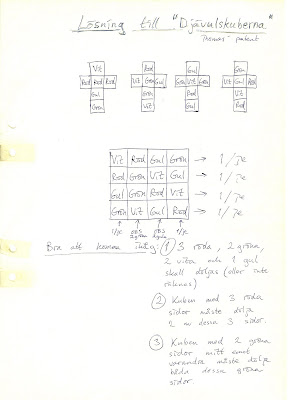 Lösning till "Djävulskuberna"
"Thomas" patent
Vit Röd Gul Grön
Röd Röd Röd Vit Grön Gul Grön Vit Grön Vit Gul Röd
Gul Grön Röd Vit
Grön Vit Gul Röd
Vit Röd Gul Grön → 1/je
Röd Grön Vit Gul → 1/je
Gul Grön Röd Vit → 1/je
Grön Vit Gul Röd → 1/je
1/je OBS OBS 1/je
Bra att komma ihåg: 1 3 röda, 2 gröna,
2 vita och 1 gul
skall döljas (eller inte
räknas)
2 Kuben med 3 röda
sidor måste dölja
2 av dessa 3 sidor.
3 Kuben med 2 gröna
sidor mitt emot
varandra måste dölja
båda dessa gröna
sidor.